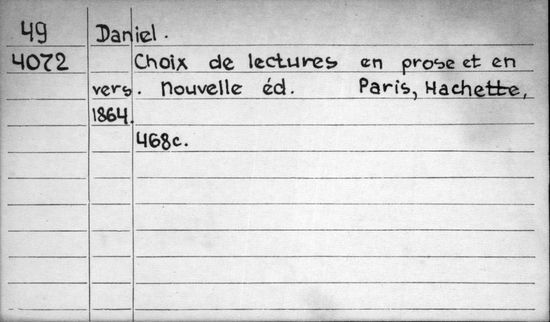 49 Daniel.
4072 Choix de lectures en prose et en
vers. Nouvelle éd. Paris, Hachette,
1864.
468c.